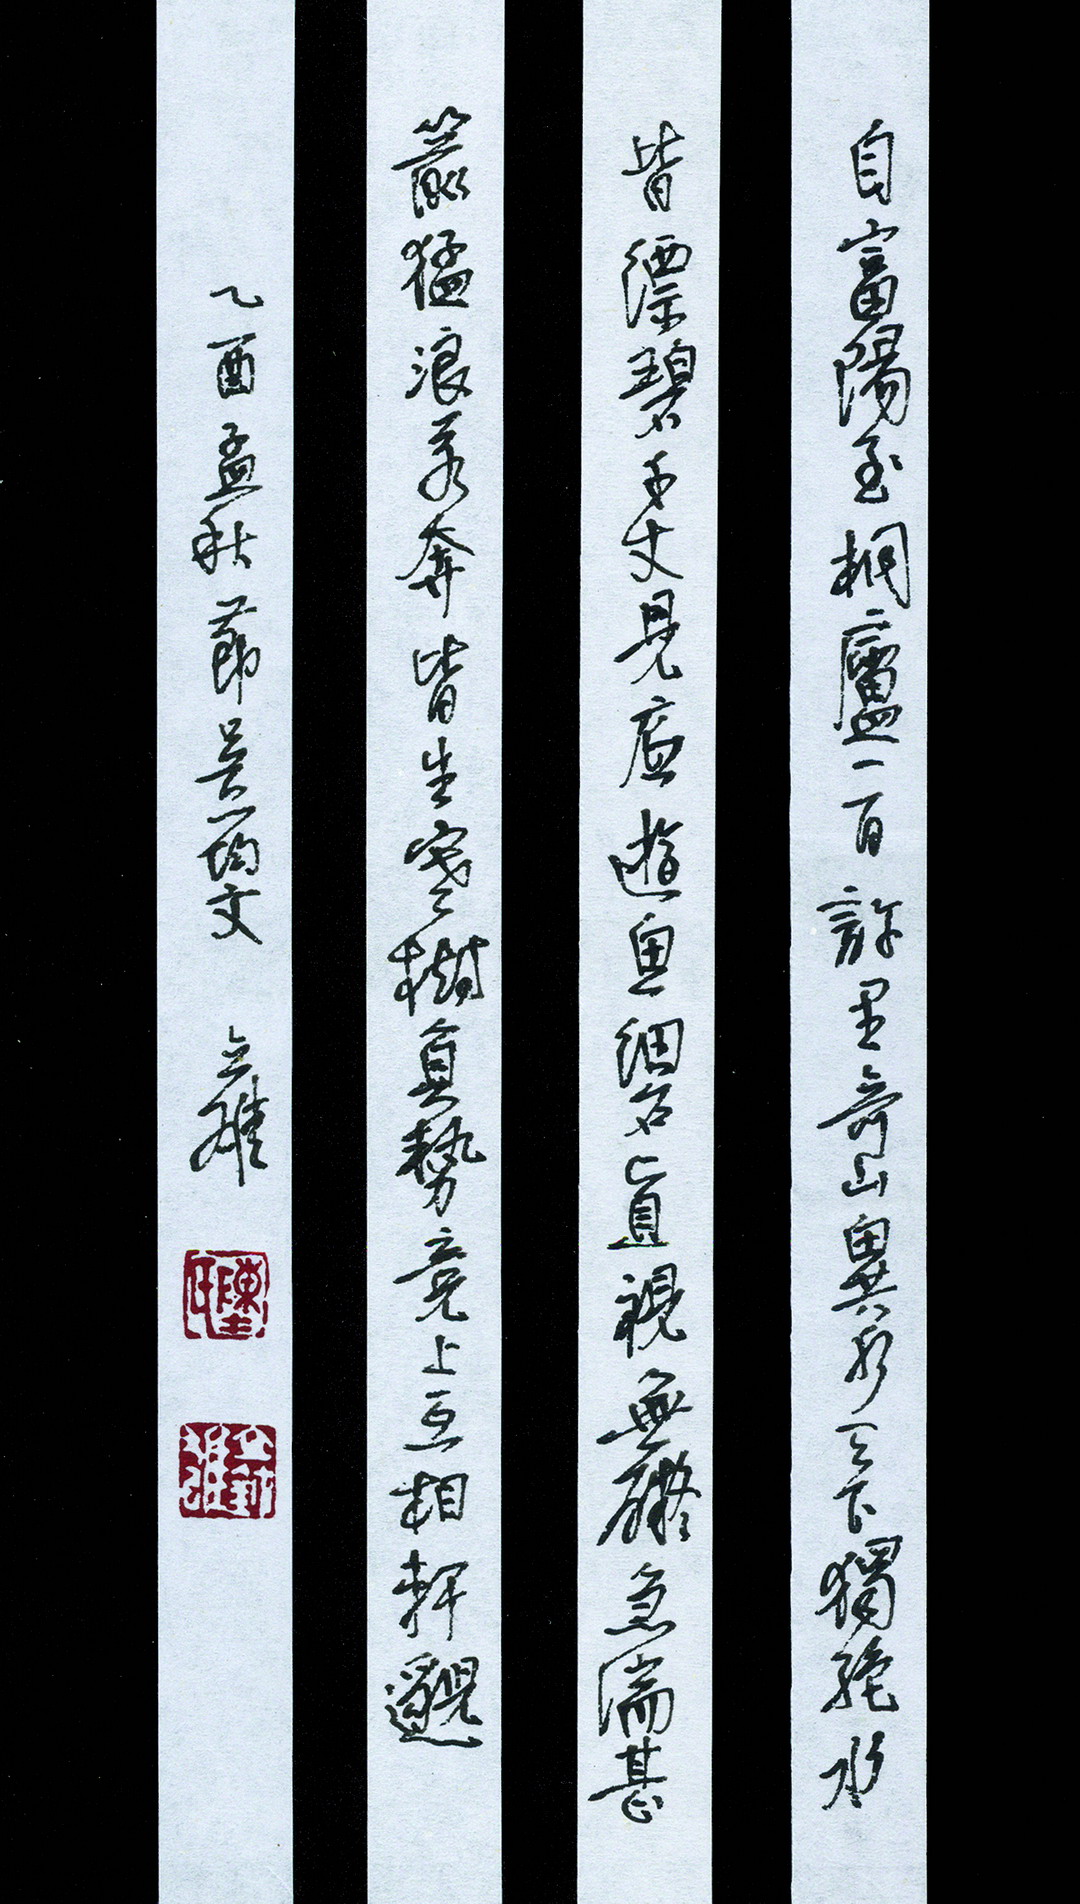 自富陽至桐廬一百許里奇山異水天下獨絕水
皆縹碧千丈見底遊魚細石直視無礙急湍甚
箭猛浪若奔皆生寒樹負勢競上互相軒邈
乙酉孟秋節吳均文 立雄